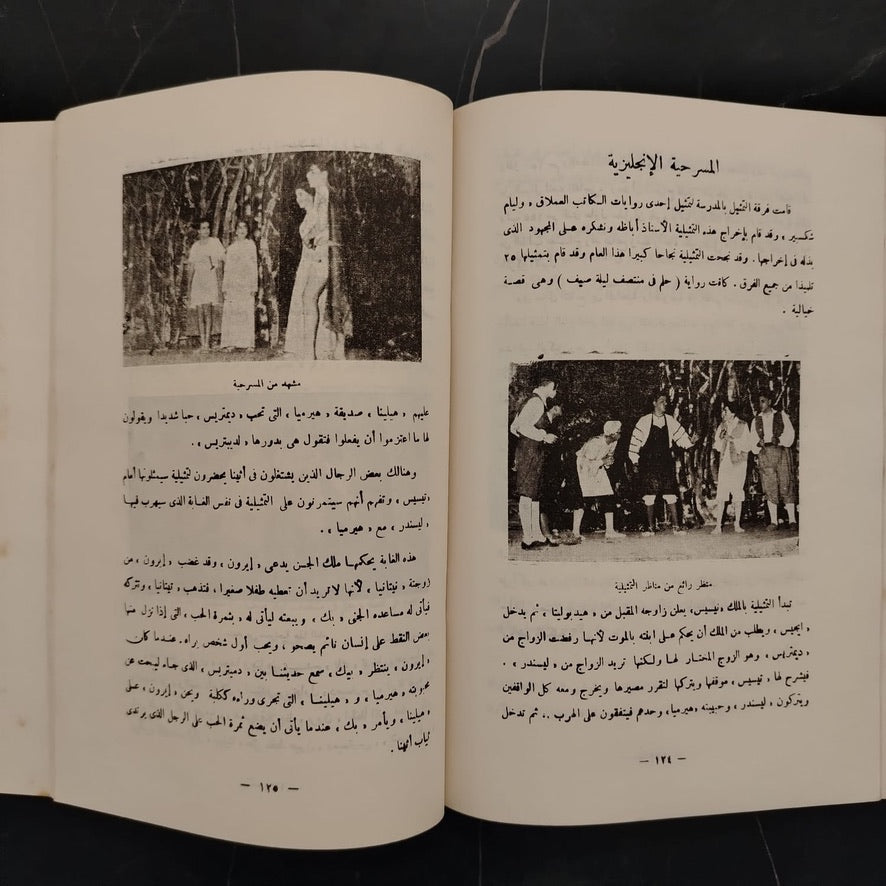 المسرحية الإنجليزية
قامت فرقة التمثيل بالمدرسة لتمثيل إحدى روايات الكاتب العملاق « وليام
شكسبير » وقد قام بإخراج هذه التمثيلية الأستاذ أباظه ونشكره على المجهود الذى
بذله فى إخراجها . وقد نجحت التمثيلية نجاحا كبيرا هذا العام وقد قام بتمثيلها ٢٥
تلميذا من جميع الفرق . كانت رواية ( حلم فى منتصف ليلة صيف ) وهى قصة
خيالية .
منظر رائع من مناظر التمثيلية
تبدأ التمثيلية بالملك « تيسيس » يعلن زواجه المقبل من « هيدبوليتا » ثم يدخل
« ايجيس » ويطلب من الملك أن يحكم على ابنته بالموت لأنها رفضت الزواج من
« ديمتريس » وهو الزوج المختار لها ولكنها تريد الزواج من « ليسندر » .
فيشرح لها « تيسيس » موقفها ويتركها لتقرر مصيرها ويخرج ومعه كل الواقفين
ويتركون « ليسندر » وحبيبته « هيرميا » وحدهم فيتفقون على الهرب .. ثم تدخل
— ١٢٤ —
مشهد من المسرحية
عليهم « هيلينا » صديقة « هيرميا » التى تحب « ديمتريس » حبا شديدا ويقولون
لها ما اعتزموا أن يفعلوا فتقول هى بدورها « لديمتريس » .
وهنالك بعض الرجال الذين يشتغلون فى أثينا يحضرون لتمثيلية سيمثلونها أمام
« تيسيس » وتفهم أنهم سيتمرنون على التمثيلية فى نفس الغابة الذى سيهرب فيها
« ليسندر » مع « هيرميا » .
هذه الغابة يحكمها ملك الجن يدعى « إبرون » وقد غضب « إبرون » من
زوجته « تيتانيا » لأنها لا تريد أن تعطيه طفلا صغيرا ، فتذهب « تيتانيا » وتتركه
فيأتى له مساعده الجنى « بك » ويبعثه ليأتى له « بثمرة الحب » التى إذا نزل منها
بعض النقط على إنسان نائم يصحو ، ويحب أول شخص يراه . عندما كان
« إبرون » ينتظر « بيك » سمع حديثنا بين « دمبتريس » الذى جاء ليبحث عن
محبوبته « هيرميا » و « هيلينا » التى تجرى وراءه ككلبة ويحن « إبرون » على
« هيلينا » ويأمر « بك » عندما يأتى أن يضع ثمرة الحب على الرجل الذى يرتدى
ثياب أثينا .
— ١٢٥ —